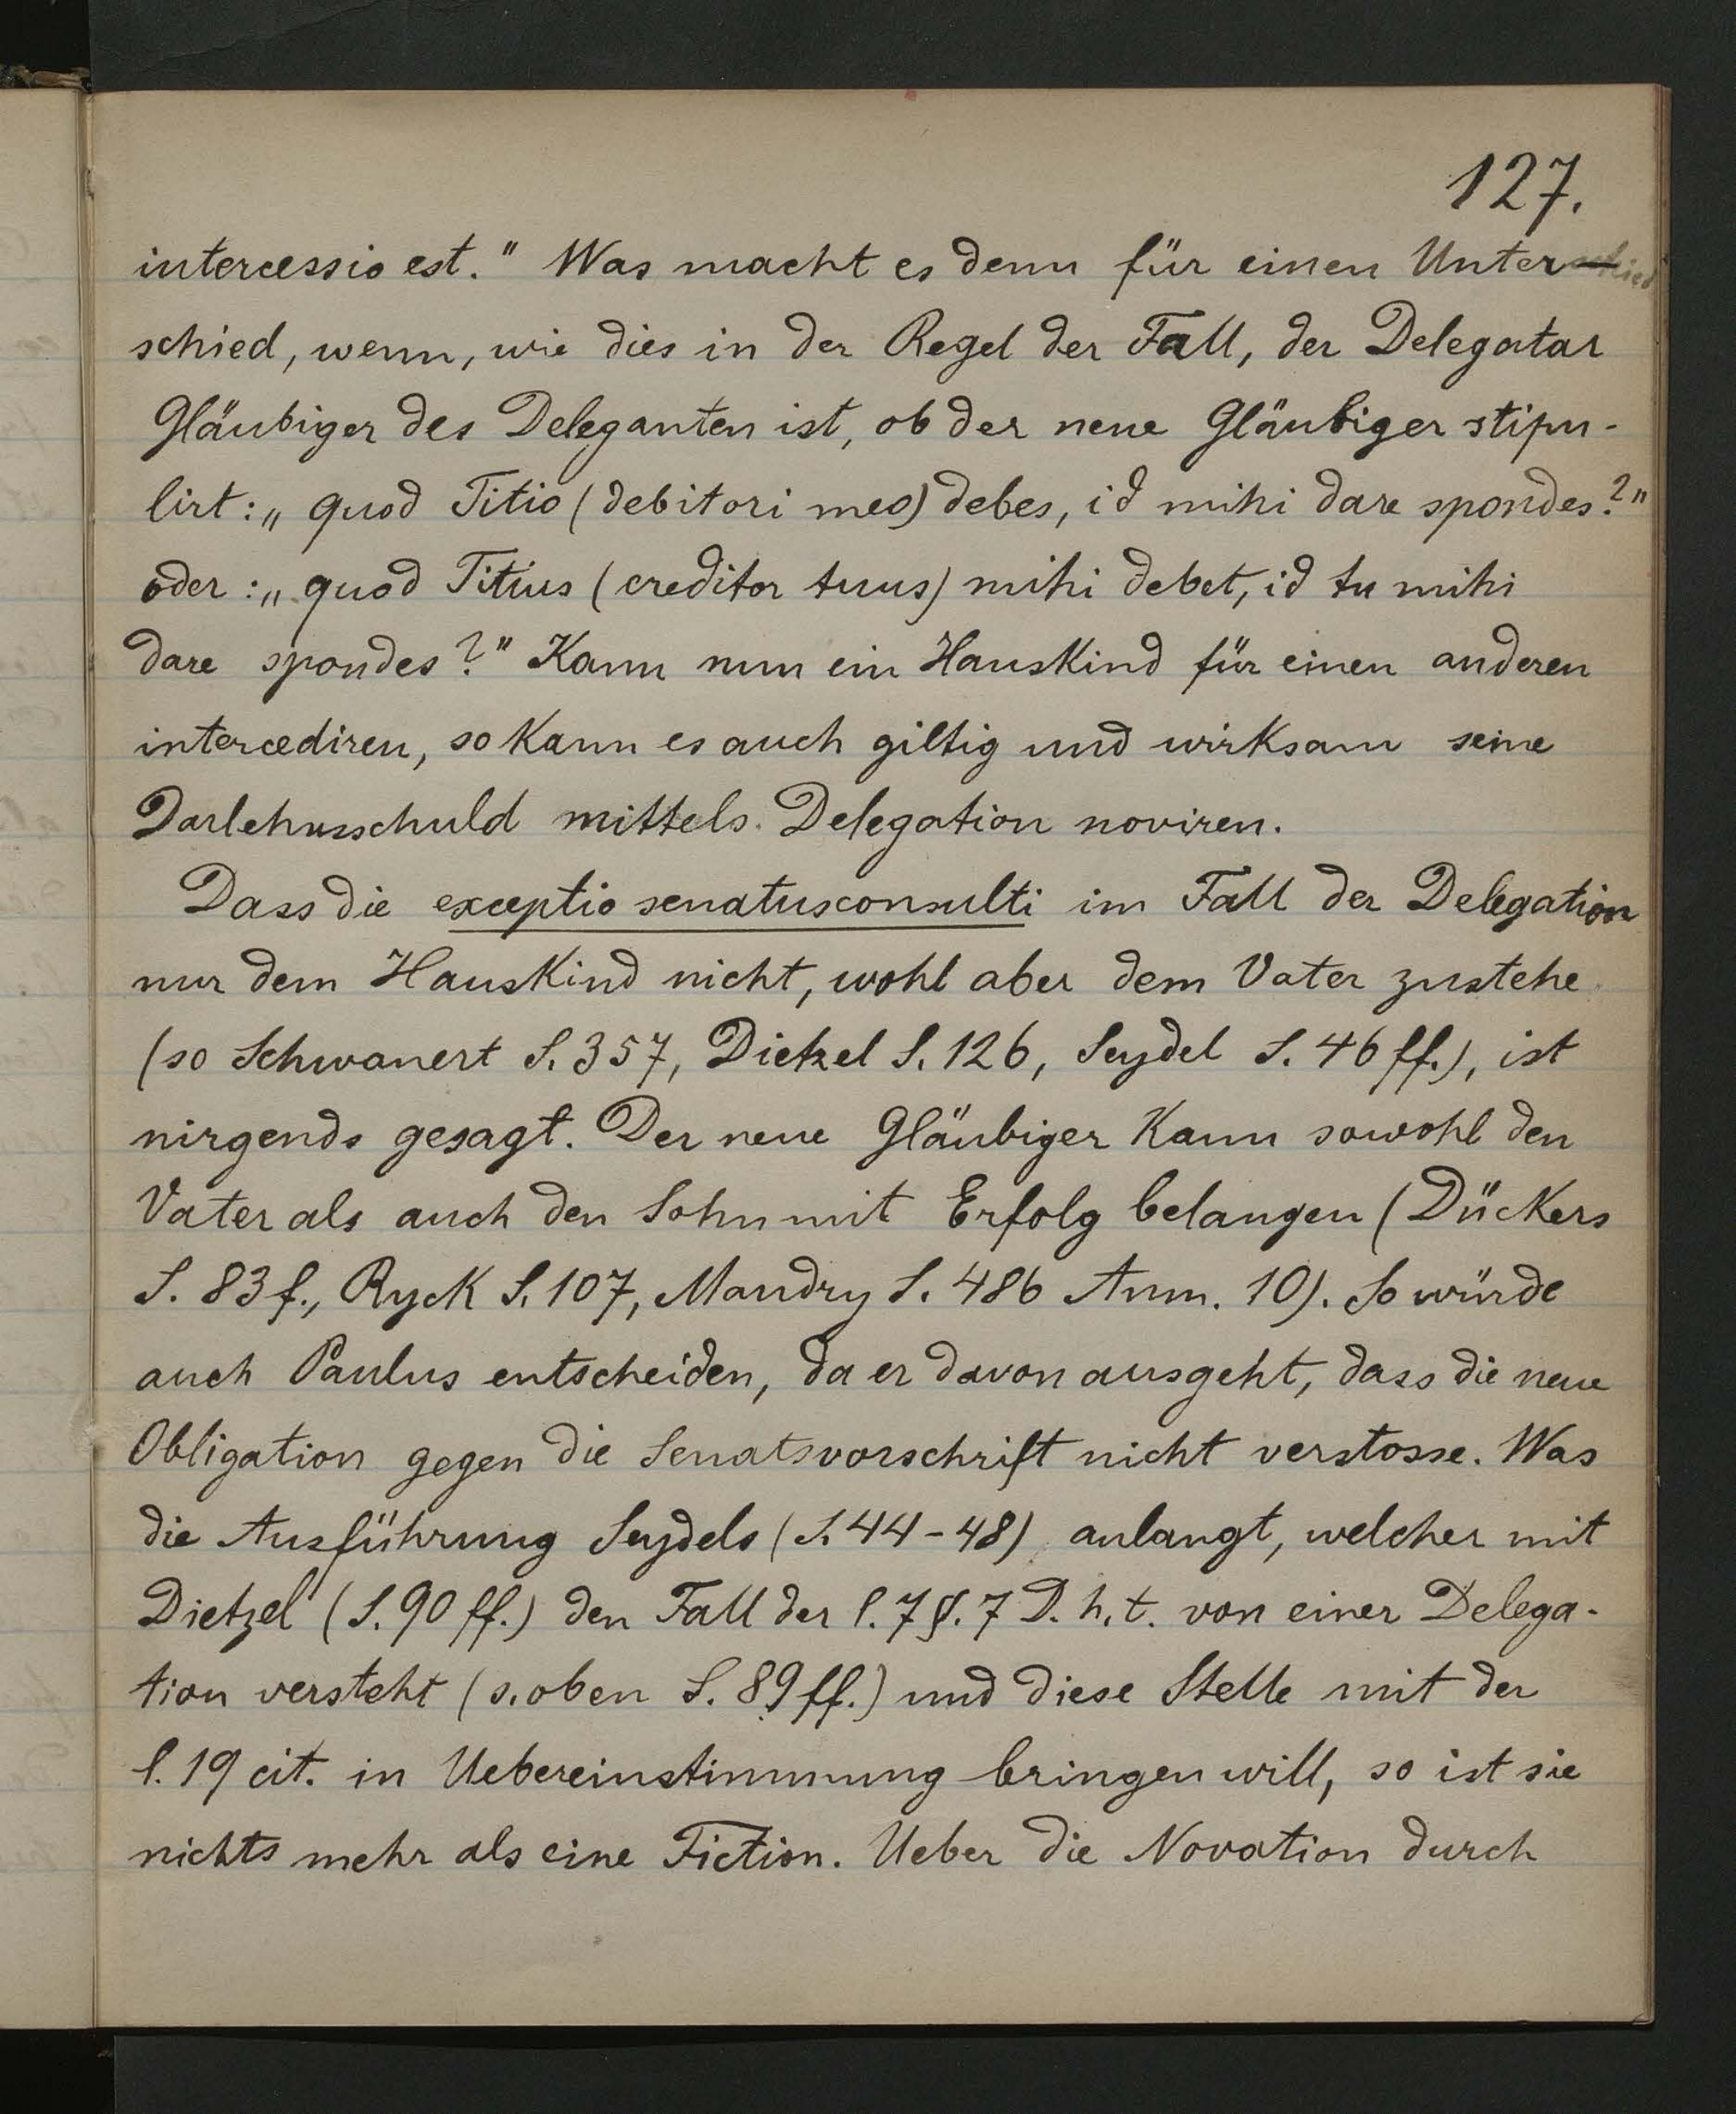 127.
intercessio est." Was macht es denn für einen Unter-
schied, wenn, wie dies in der Regel der Fall, der Delegatar
Gläubiger des Deleganten ist, ob der neue Gläubiger stipu-
lirt: „quod Titio (debitori meo) debes, id mihi dare spondes?"
oder: „quod Titius (creditor tuus) mihi debet, id tu mihi
dare spondes?" Kann nun ein Hauskind für einen anderen
intercediren, so kann es auch giltig und wirksam seine
Darlehnsschuld mittels Delegation noviren.
Dass die exceptio senatusconsulti im Fall der Delegation
nur dem Hauskind nicht, wohl aber dem Vater zustehe
(so Schwanert S. 357, Dietzel S. 126, Seydel S. 46 ff.), ist
nirgends gesagt. Der neue Gläubiger kann sowohl den
Vater als auch den Sohn mit Erfolg belangen (Dückers
S. 83 f., Ryck S. 107, Mandry S. 486 Anm. 10). So würde
auch Paulus entscheiden, da er davon ausgeht, dass die neue
Obligation gegen die Senatsvorschrift nicht verstosse. Was
die Ausführung Seydels (S. 44-48) anlangt, welcher mit
Dietzel (S. 90 ff.) den Fall der l. 7 §. 7 D. h. t. von einer Delega-
tion versteht (s. oben S. 89 ff.) und diese Stelle mit der
l. 19 cit. in Uebereinstimmung bringen will, so ist sie
nichts mehr als eine Fiction. Ueber die Novation durch